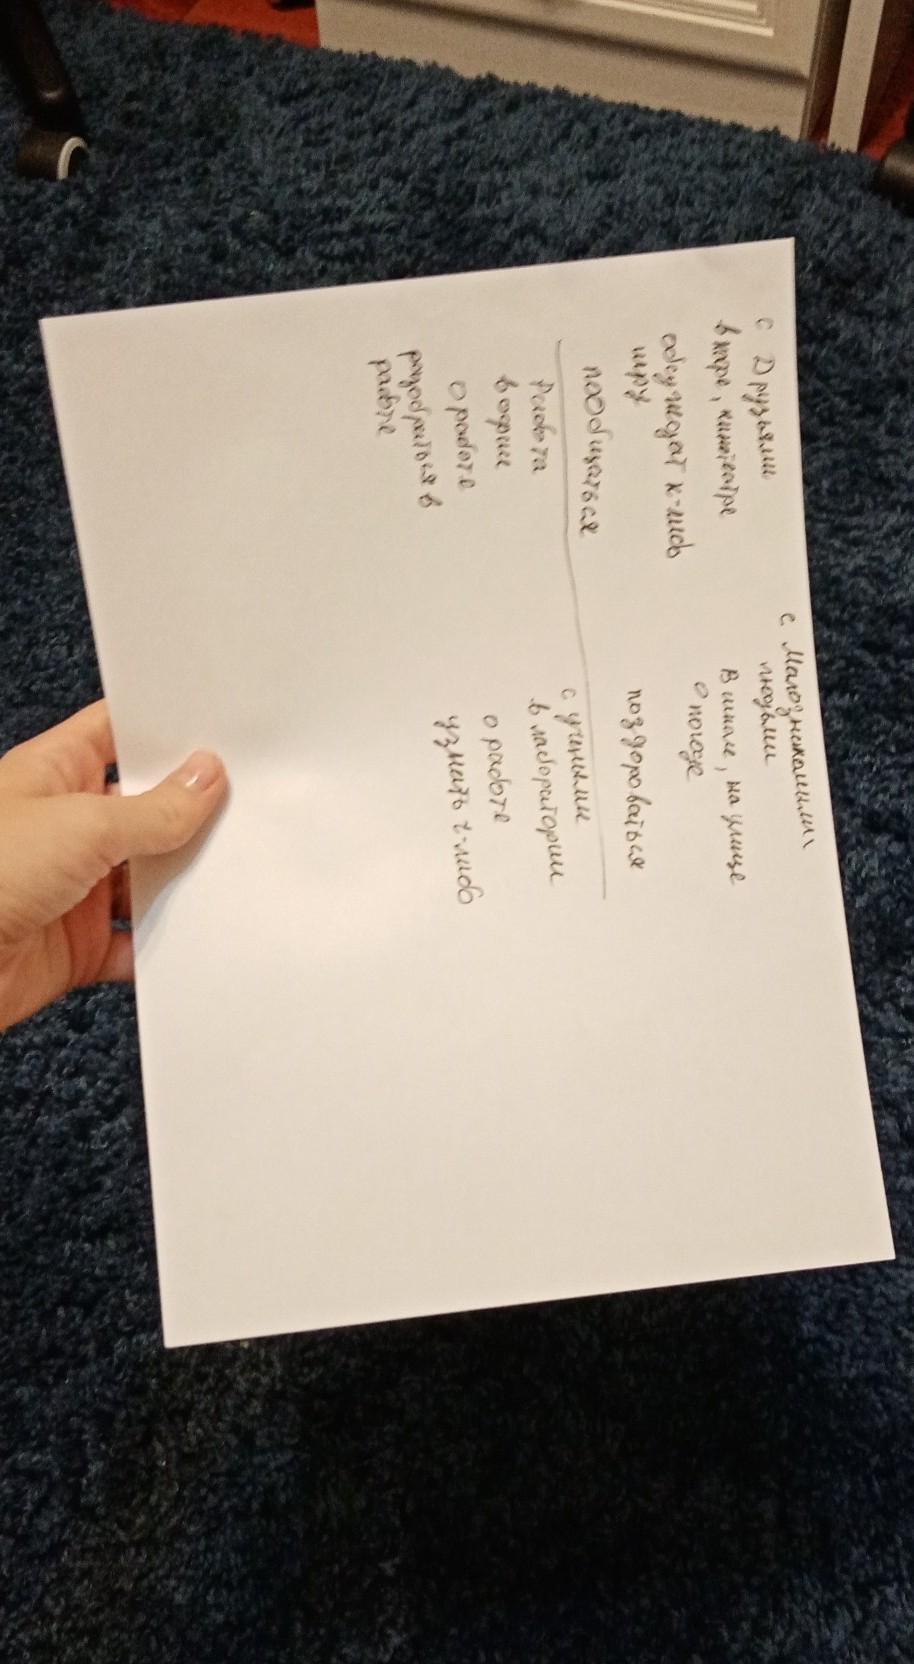 с Друзьями
в кафе, кинотеатре
обсуждат к-либо
игру
пообщаться
с Малознакомыми
людьми
В школе, на улице
о погоде
поздороваться
Работа
в офрии
о работе
разобраться в
работе
с учиными
в лаборатории
о работе
узнать ч-либо